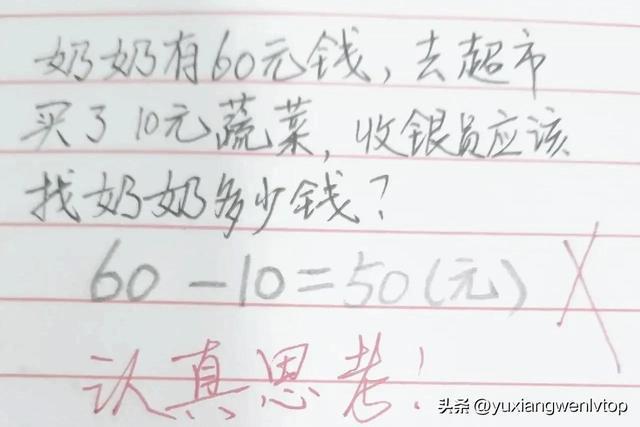 奶奶有60元钱，去超市
买了10元蔬菜，收银员应该
找奶奶多少钱？
60-10=50(元) ×
认真思考！
头条 @yuxiangwenlvtop